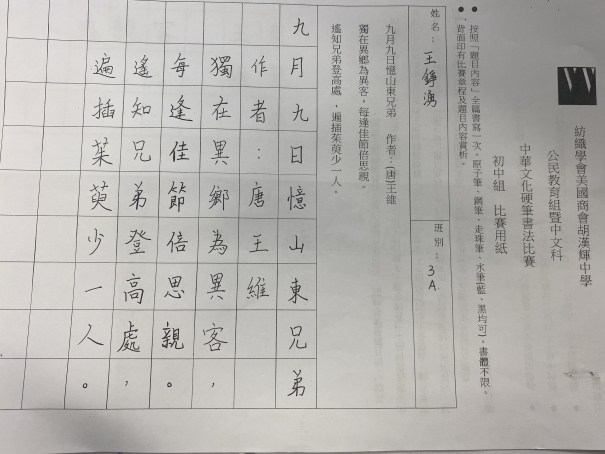 紡織學會美國商會胡漢輝中學
公民教育組暨中文科
中華文化硬筆書法比賽
初中組 比賽用紙
● 按照「題目內容」全篇書寫一次。原子筆、鋼筆、走珠筆、水筆(藍、黑均可)，書體不限。
● 背面印有比賽章程及題目內容賞析。
姓名： 王錚湧 班別： 3A.
九月九日憶山東兄弟 作者：(唐)王維
獨在異鄉為異客，每逢佳節倍思親。
遙知兄弟登高處，遍插茱萸少一人。
九月九日憶山東兄弟
作者：唐王維
獨在異鄉為異客，
每逢佳節倍思親。
遙知兄弟登高處，
遍插茱萸少一人。